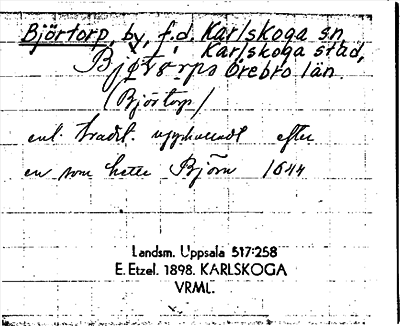 Björtorp, by, f.d. Karlskoga sn
i Karlskoga stad,
Björtorps Örebro län.
(Björtorp)
enl. tradit. uppkalladt efter
en som hette Björn 1644
Landsm. Uppsala 517:258
E. Etzel. 1898. KARLSKOGA
VRML.